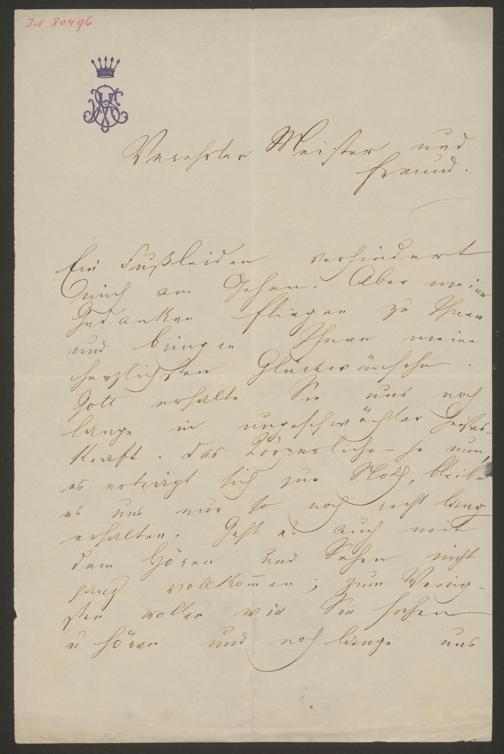 J.N 80496
Verehrter Meister und
Freund.
Ein Fußleiden verhindert
mich am Gehen. Aber meine
Gedanken fliegen zu Ihnen
und bringen Ihnen meine
herzlichsten Glückwünsche.
Gott erhalte Sie uns noch
lange in ungeschwächter Geistes-
kraft. Das Körperliche – je nun
es erträgt sich zur Noth, bleibe
es uns nur so noch recht lang
erhalten. Geht es auch mit
dem Hören und Sehen nicht
ganz vollkommen; zum Wenig-
sten wollen wir Sie sehen
u hören und noch lange uns